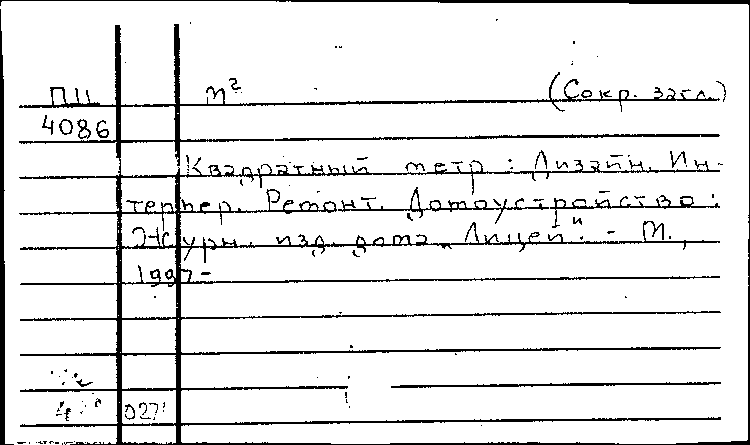 ПЦ m² (Сокр. загл.)
4086
Квадратный метр : Дизайн. Ин-
терьер. Ремонт. Домоустройство :
Журн. изд. дома „Лицей“. - М.,
1997-
027